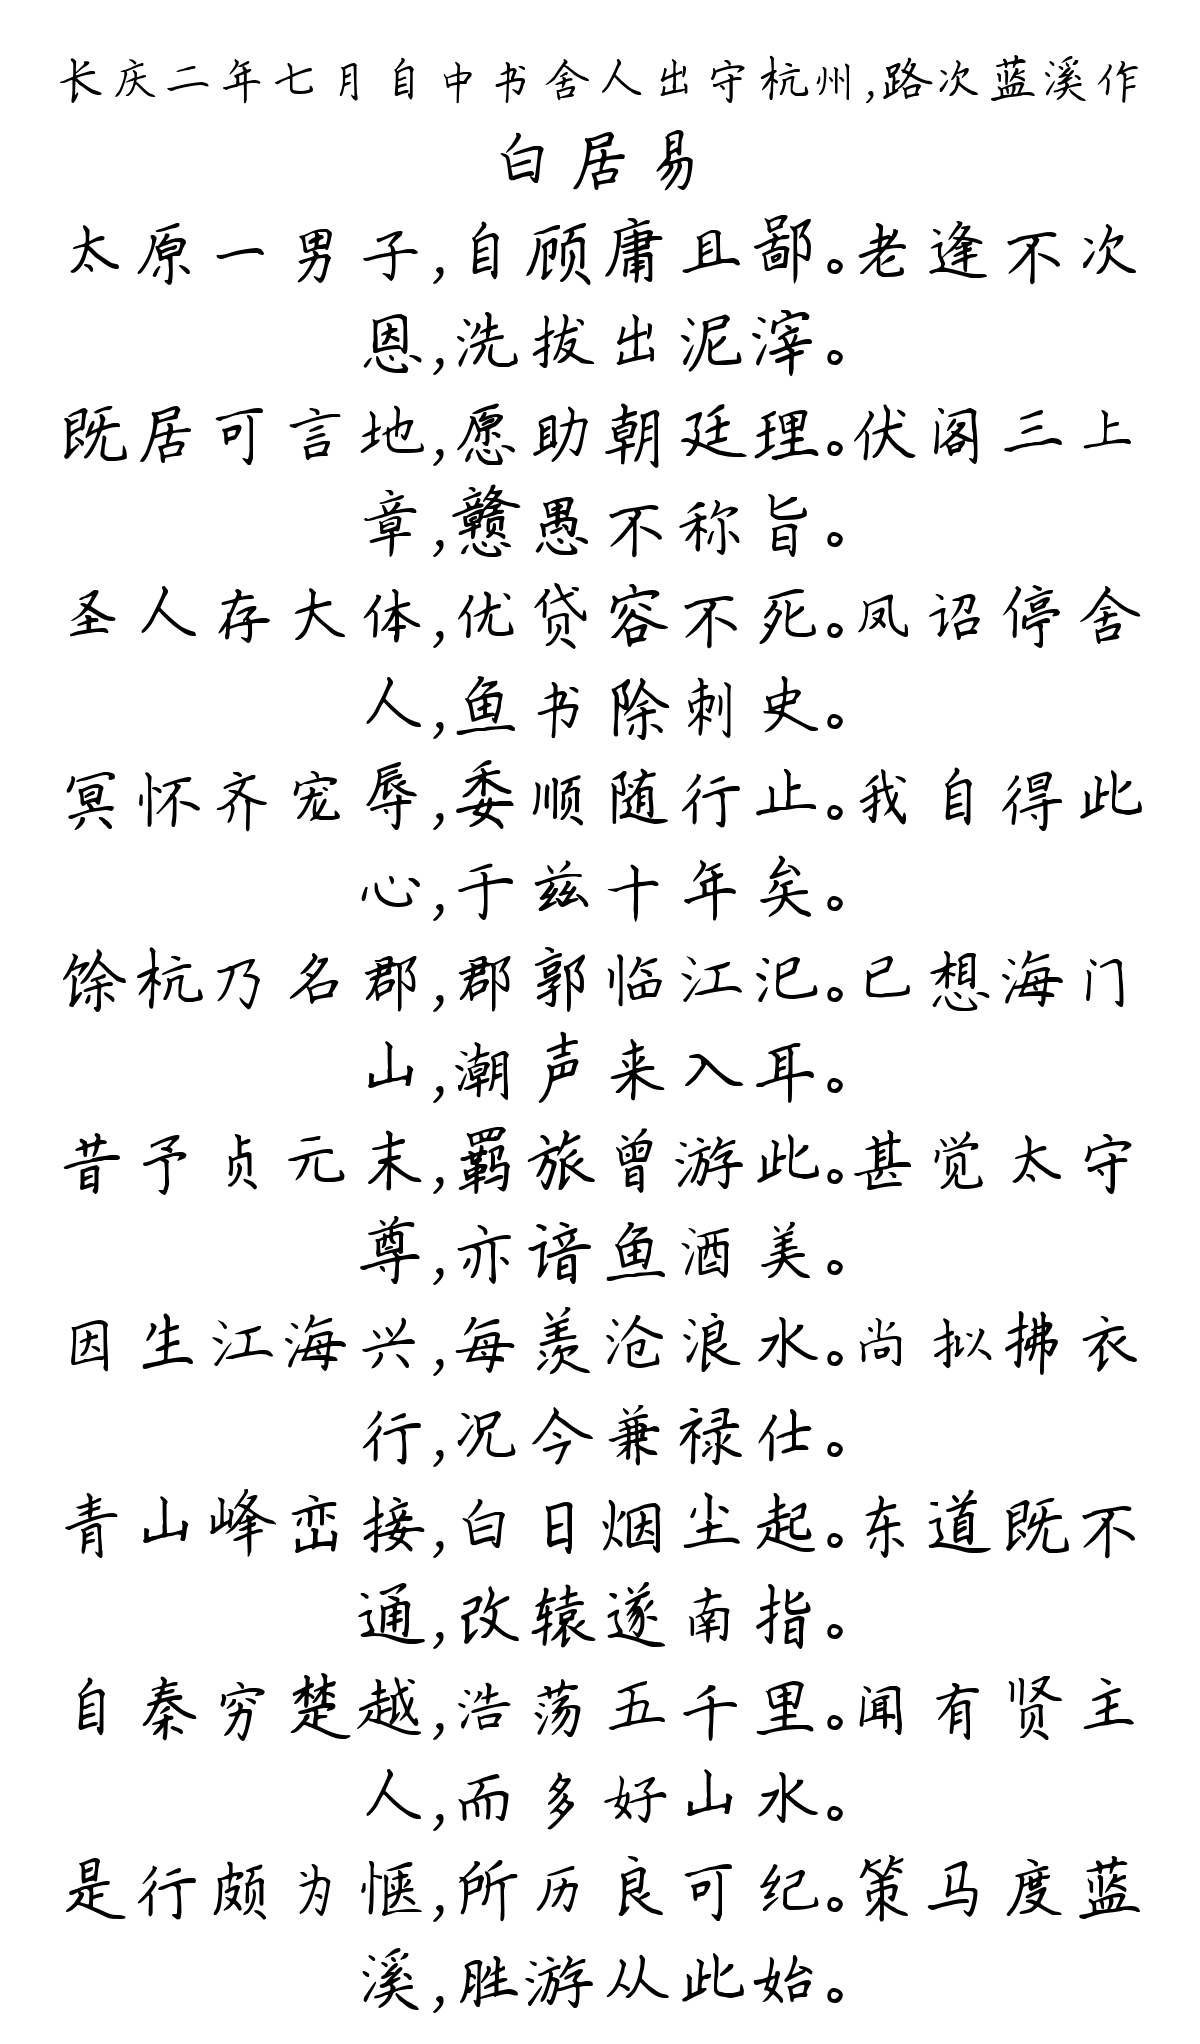 长庆二年七月自中书舍人出守杭州,路次蓝溪作
白居易
太原一男子,自顾庸且鄙。老逢不次
恩,洗拔出泥滓。
既居可言地,愿助朝廷理。伏阁三上
章,戆愚不称旨。
圣人存大体,优贷容不死。凤诏停舍
人,鱼书除刺史。
冥怀齐宠辱,委顺随行止。我自得此
心,于兹十年矣。
馀杭乃名郡,郡郭临江汜。已想海门
山,潮声来入耳。
昔予贞元末,羁旅曾游此。甚觉太守
尊,亦谙鱼酒美。
因生江海兴,每羡沧浪水。尚拟拂衣
行,况今兼禄仕。
青山峰峦接,白日烟尘起。东道既不
通,改辕遂南指。
自秦穷楚越,浩荡五千里。闻有贤主
人,而多好山水。
是行颇为惬,所历良可纪。策马度蓝
溪,胜游从此始。